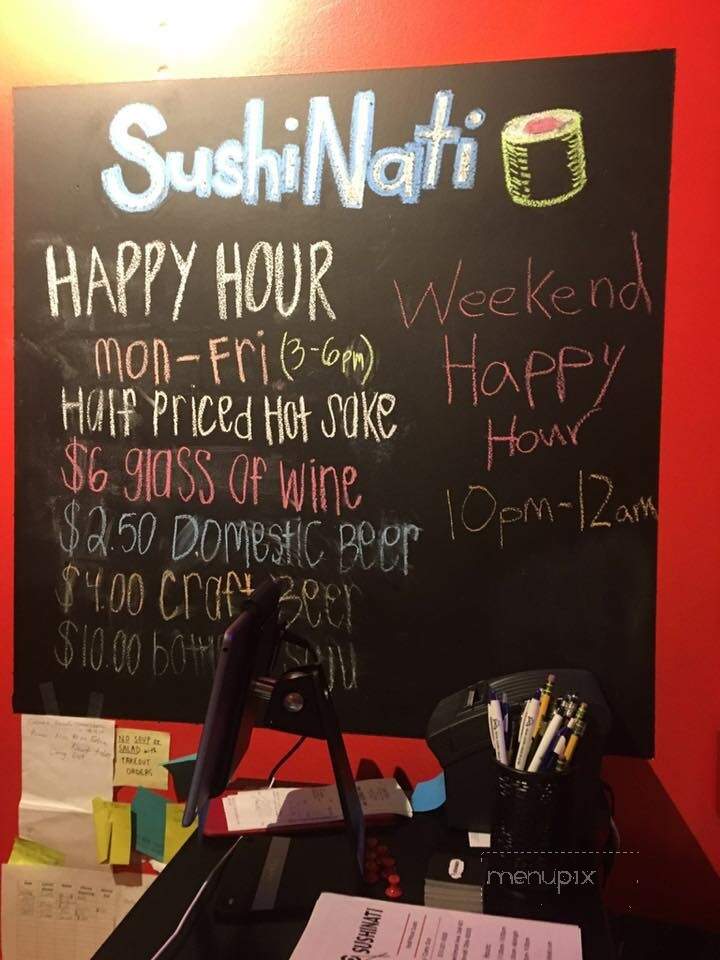 SushiNati
HAPPY HOUR
mon-Fri (3-6pm)
Half Priced Hot Sake
$6 glass of wine
$2.50 Domestic Beer
$4.00 craft Beer
$10.00
Weekend
Happy
Hour
10pm-12am
NO SOUP or
SALAD with
TAKEOUT
ORDERS
SUSHINATI
menupix